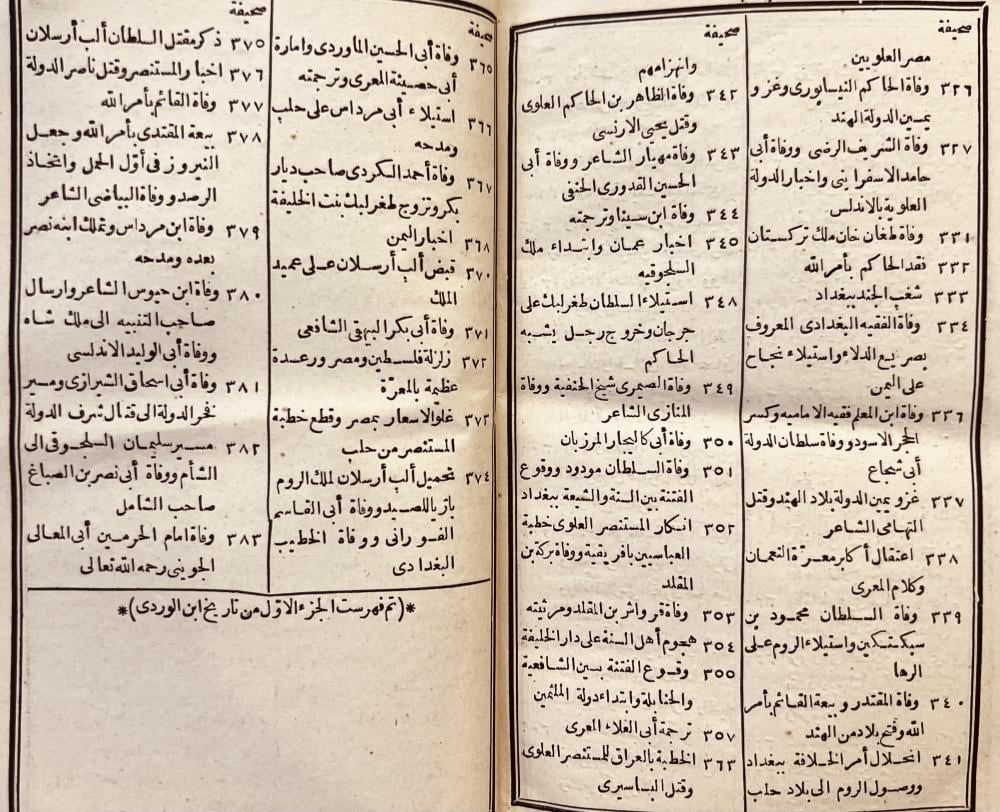 صحيفة
مصر العلويين
٣٢٦ وفاة الحاكم النيسابورى وغزو
يمين الدولة الهند
٣٢٧ وفاة الشريف الرضى ووفاة أبى
حامد الاسفراينى واخبار الدولة
العلوية بالاندلس
٣٣١ وفاة طغان خان ملك تركستان
٣٣٢ فقد الحاكم بأمر الله
٣٣٣ شغب الجند ببغداد
٣٣٤ وفاة الفقيه البغدادى المعروف
بصريع الدلاء واستيلاء نجاح
على اليمن
٣٣٦ وفاة ابن المعلم فقيه الاماميه وكسر
الحجر الاسود ووفاة سلطان الدولة
أبى شجاع
٣٣٧ غزو يمين الدولة بلاد الهند وقتل
التهامى الشاعر
٣٣٨ اعتقال أكابر معرّة النعمان
وكلام المعرى
٣٣٩ وفاة السلطان محمود بن
سبكتكين واستيلاء الروم على
الرها
٣٤٠ وفاة المقتدر وبيعة القائم بأمر
الله وفتح بلاد من الهند
٣٤١ انحلال أمر الخلافة ببغداد
ووصول الروم الى بلاد حلب
صحيفة
وانهزامهم
٣٤٢ وفاة الظاهر بن الحاكم العلوى
وقتل يحيى الارنسى
٣٤٣ وفاة مهيار الشاعر ووفاة أبى
الحسين القدورى الحنفى
٣٤٤ وفاة ابن سينا وترجمته
٣٤٥ اخبار عمان وابتداء ملك
السلجوقيه
٣٤٨ استيلاء السلطان طغرلبك على
جرجان وخروج رجل يشبه
الحاكم
٣٤٩ وفاة الصيمرى شيخ الحنفية ووفاة
المنازى الشاعر
٣٥٠ وفاة أبى كاليجار المرزبان
٣٥١ وفاة السلطان مودود ووقوع
الفتنة بين السنة والشيعة ببغداد
٣٥٢ انكار المستنصر العلوى خطبة
العباسيين بافريقية ووفاة بركة بن
المقلد
٣٥٣ وفاة قرواش بن المقلد ومرثيته
٣٥٤ هجوم أهل السنة على دار الخليفة
٣٥٥ وقوع الفتنة بين الشافعية
والحنابلة وابتداء دولة الملثمين
٣٥٧ ترجمة أبى العلاء المعرى
٣٦٣ الخطبة بالعراق للمستنصر العلوى
وقتل البساسيرى
صحيفة
٣٦٥ وفاة أبى الحسين الماوردى وامارة
أبى حصيئة المعرى وترجمته
٣٦٦ استيلاء أبى مرداس على حلب
ومدحه
٣٦٧ وفاة أحمد الكردى صاحب ديار
بكر وتزوج طغرلبك بنت الخليفة
٣٦٨ اخبار اليمن
٣٧٠ قبض ألب أرسلان على عميد
الملك
٣٧١ وفاة أبى بكر البيهقى الشافعى
٣٧٢ زلزلة فلسطين ومصر ورعدة
عظيمة بالمعرّة
٣٧٣ غلو الاسعار بمصر وقطع خطبة
المستنصر من حلب
٣٧٤ تحميل ألب أرسلان لملك الروم
بازيا للصيد ووفاة أبى القاسم
الفورانى ووفاة الخطيب
البغدادى
صحيفة
٣٧٥ ذكر مقتل السلطان ألب أرسلان
٣٧٦ اخبار المستنصر وقتل ناصر الدولة
٣٧٧ وفاة القائم بأمر الله
٣٧٨ بيعة المقتدى بأمر الله وجعل
النيروز فى أوّل الحمل واتخاذ
الرصد ووفاة البياضى الشاعر
٣٧٩ وفاة ابن مرداس وتملك ابنه نصر
بعده ومدحه
٣٨٠ وفاة ابن حيوس الشاعر وارسال
صاحب التنبيه الى ملك شاه
ووفاة أبى الوليد الاندلسى
٣٨١ وفاة أبى اسحاق الشيرازى ومسير
فخر الدولة الى قتال شرف الدولة
٣٨٢ مسير سليمان السلجوقى الى
الشأم ووفاة أبى نصر بن الصباغ
صاحب الشامل
٣٨٣ وفاة امام الحرمين أبى المعالى
الجوينى رحمه الله تعالى
*(تم فهرست الجزء الاوّل من تاريخ ابن الوردى)*